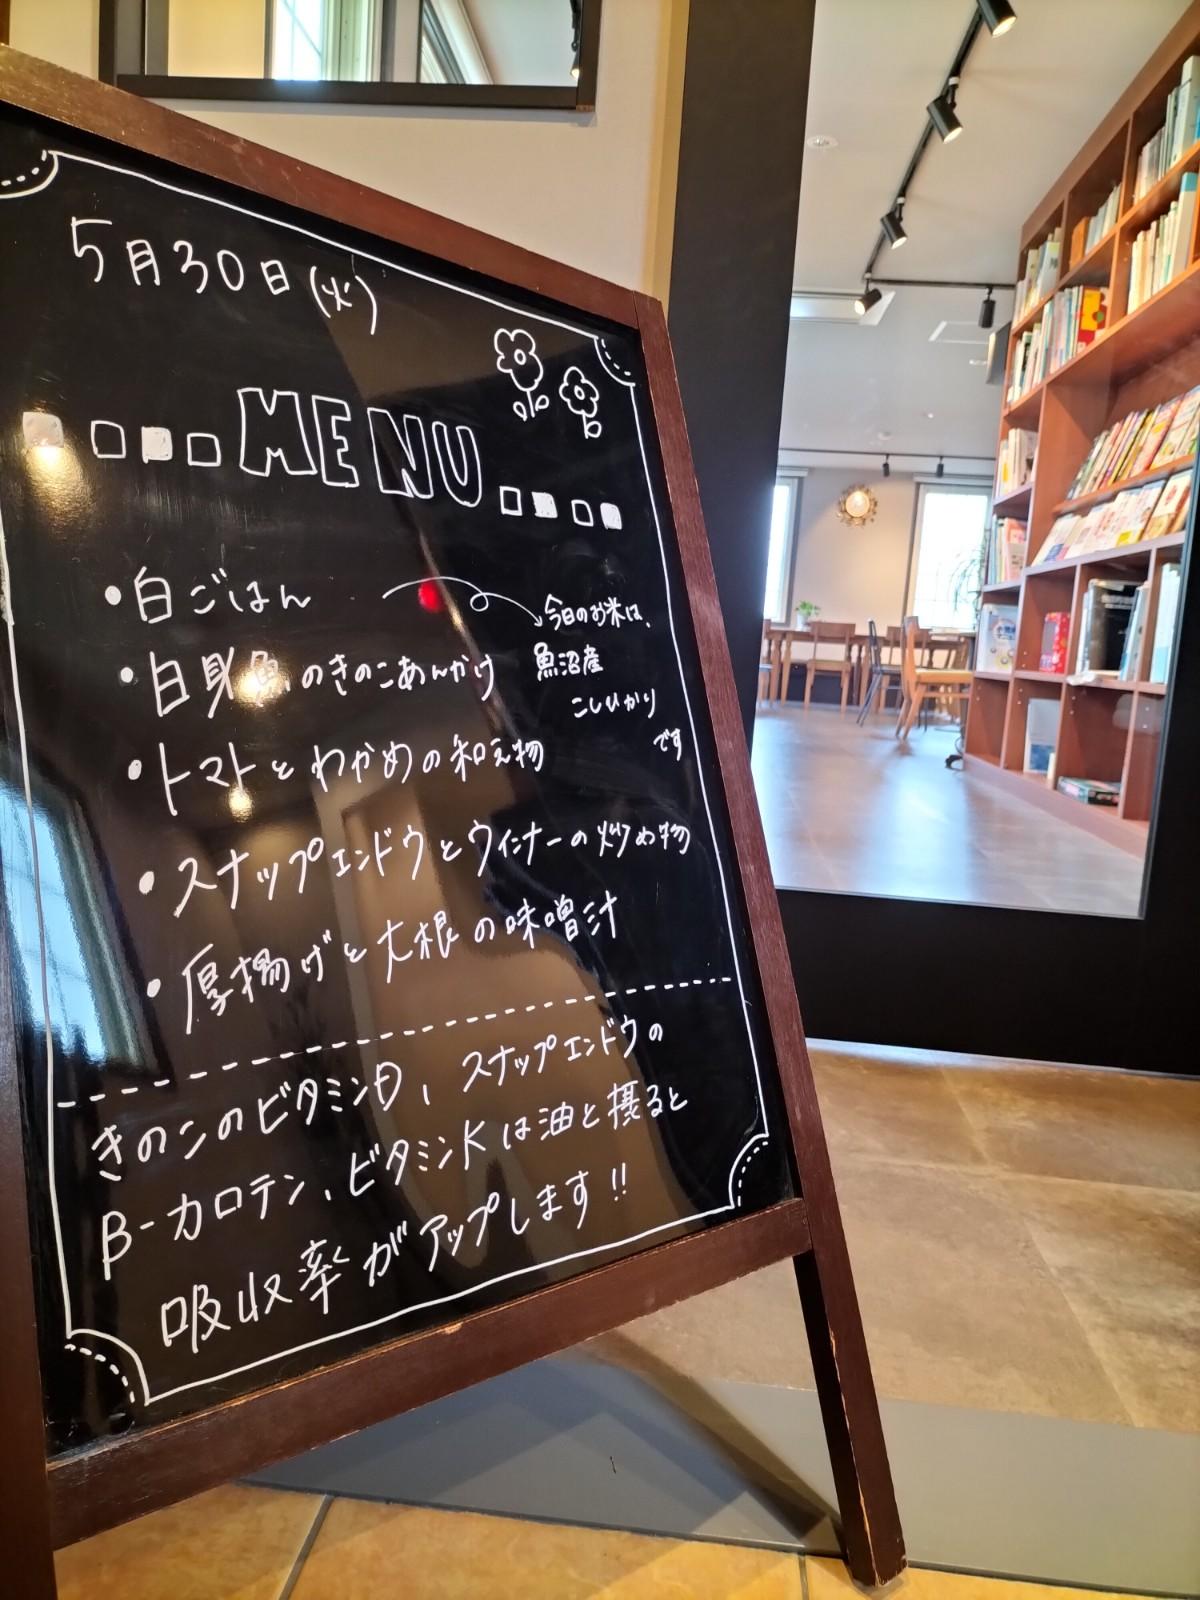 5月30日(火)
MENU
・白ごはん
今日のお米は、
魚沼産
こしひかり
です
・白身魚のきのこあんかけ
・トマトとわかめの和え物
・スナップエンドウとウインナーの炒め物
・厚揚げと大根の味噌汁
きのこのビタミンD、スナップエンドウの
β-カロテン、ビタミンKは油と摂ると
吸収率がアップします!!